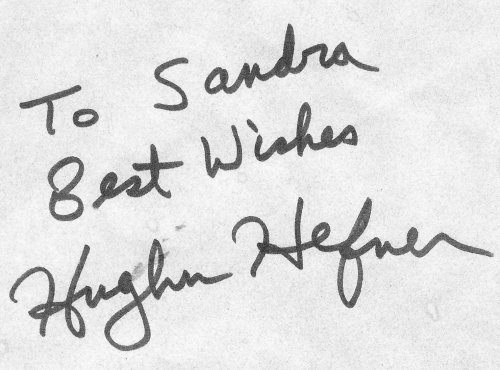 To Sandra
Best Wishes
Hugh M Hefner